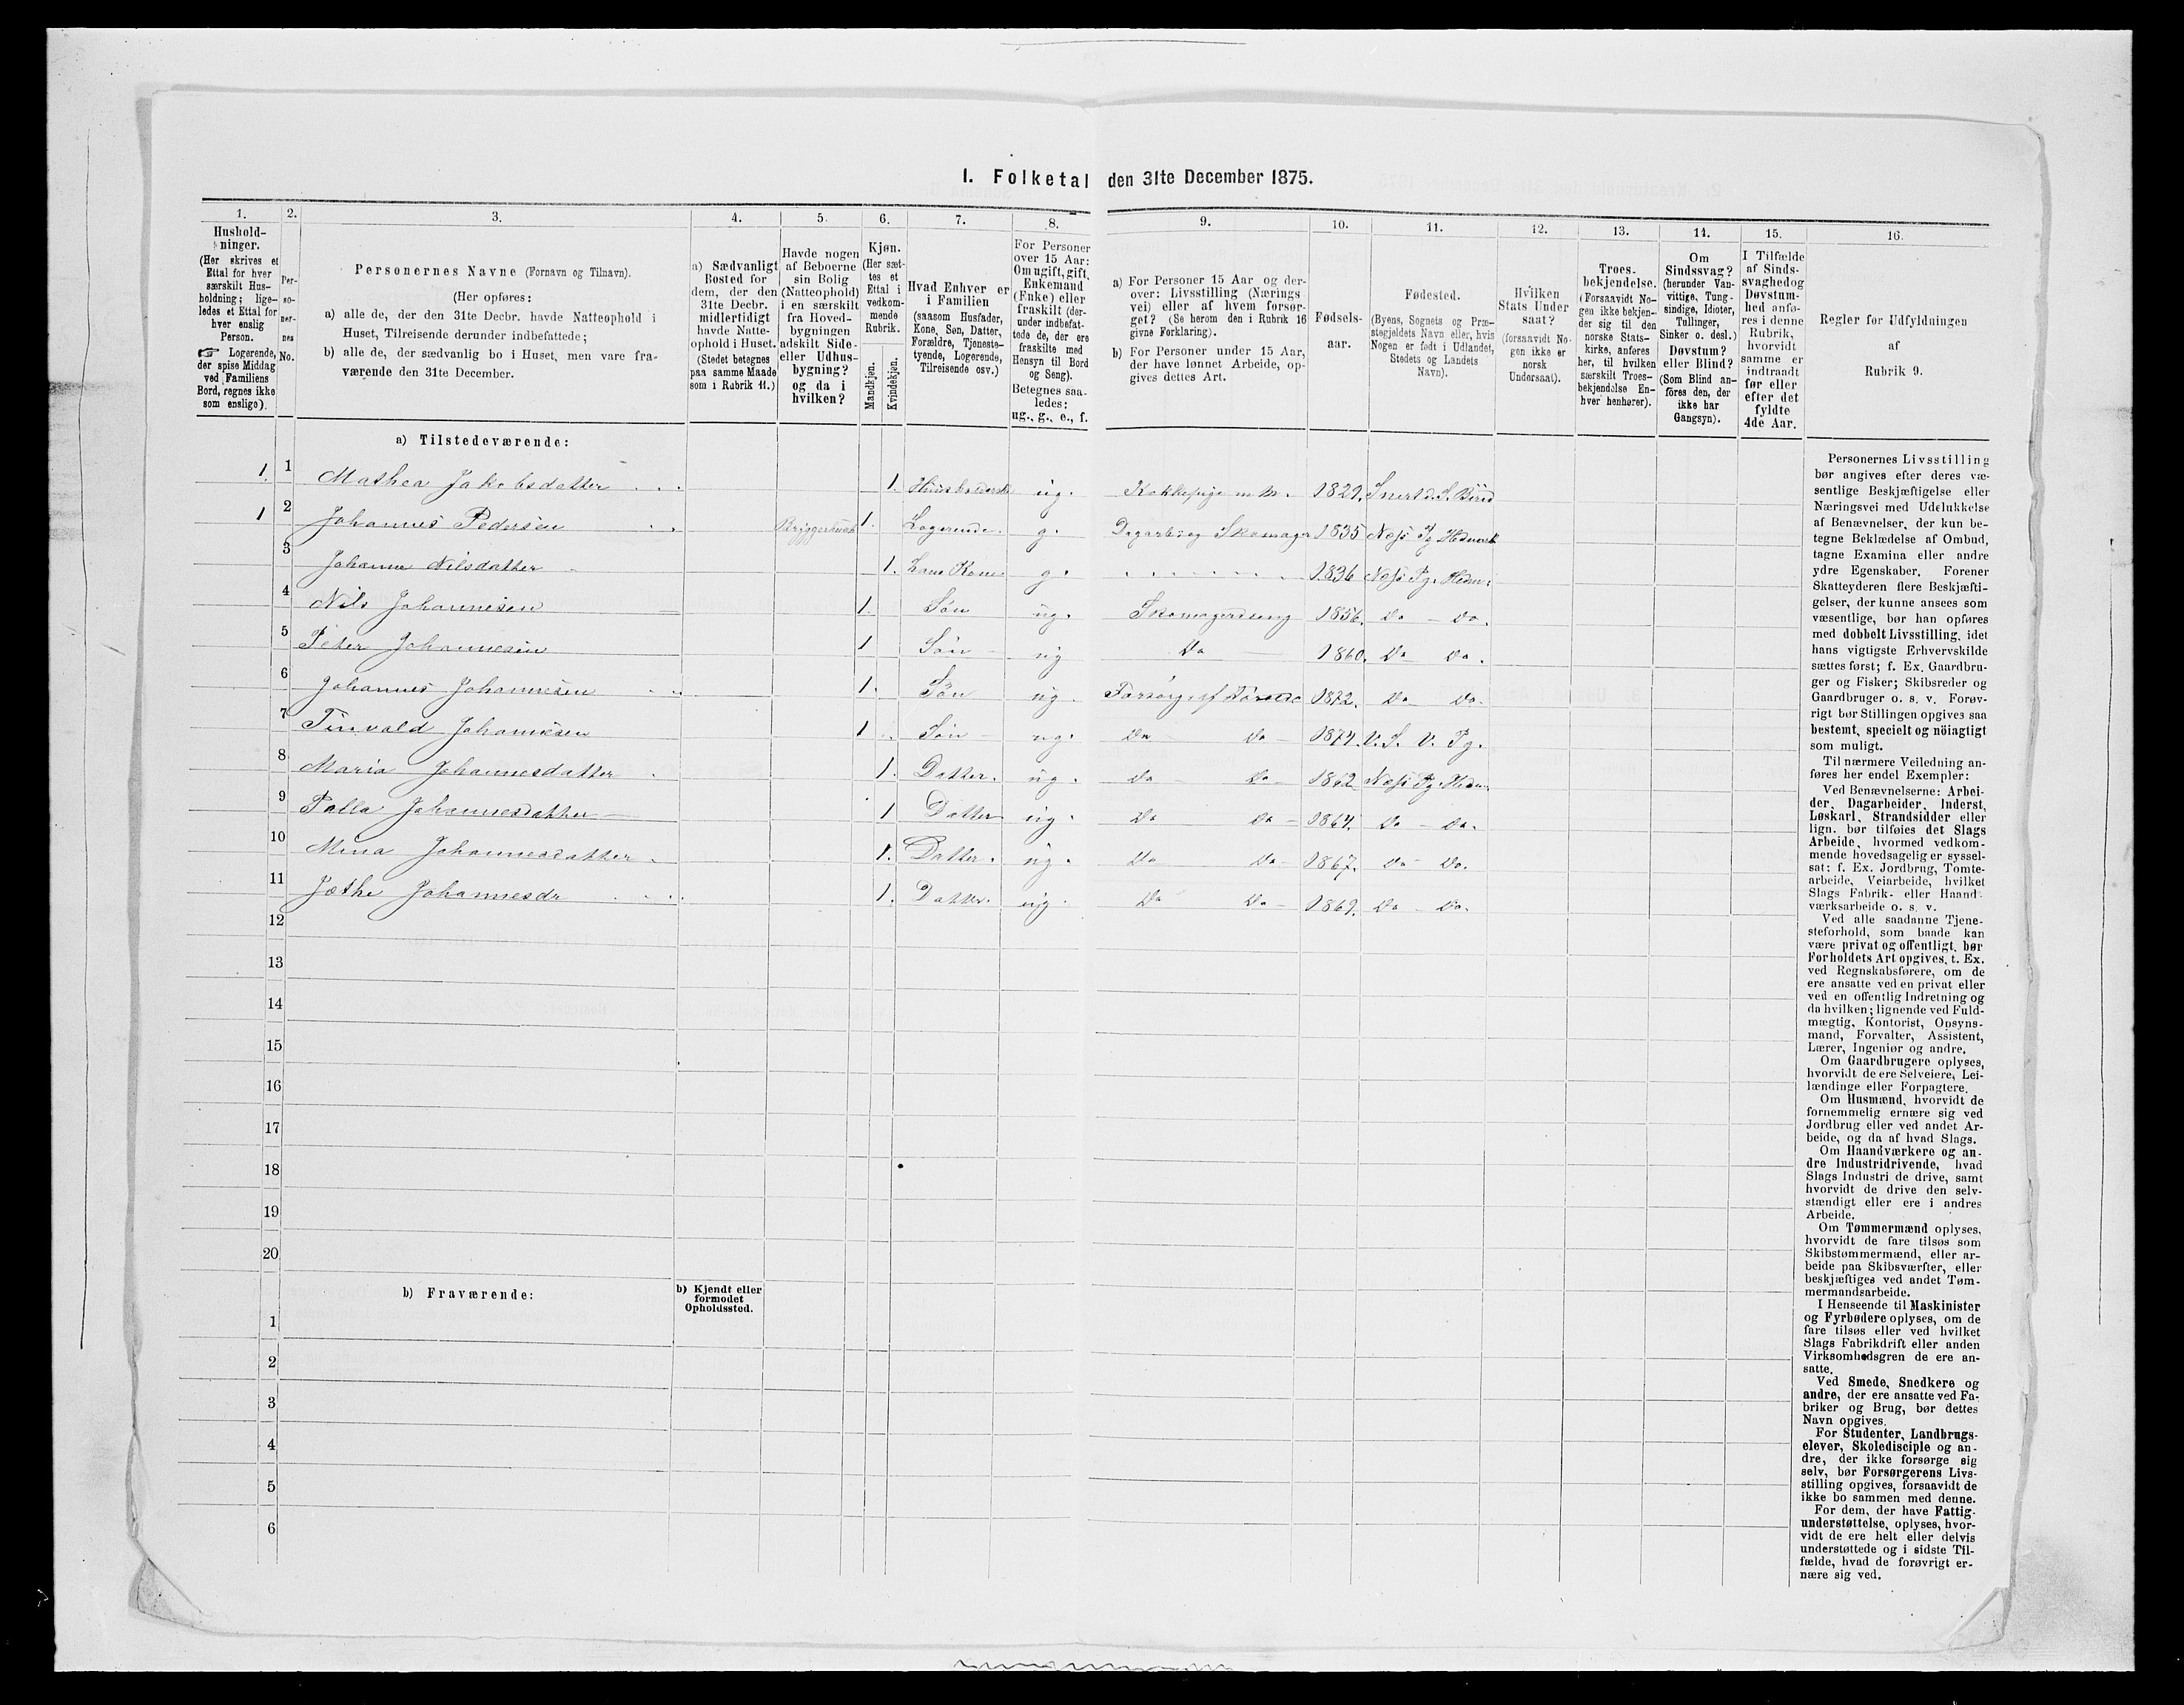 I. Folketal den 31te December 1875.
1.
Hushold-
ninger.
(Her skrives et
Ettal for hver
særskilt Hus-
holdning; lige-
ledes et Ettal for
hver enslig
Person.
☞ Logerende,
der spise Middag
ved Familiens
Bord, regnes ikke
som enslige).
2.
Per-
so-
ner-
nes
No.
3.
Personernes Navne (Fornavn og Tilnavn).
(Her opføres:
a) alle de, der den 31te Decbr. havde Natteophold i
Huset, Tilreisende derunder indbefattede;
b) alle de, der sædvanlig bo i Huset, men vare fra-
værende den 31te December.
4.
a) Sædvanligt
Bosted for
dem, der den
31te Decbr.
midlertidigt
havde Natte-
ophold i Huset.
(Stedet betegnes
paa samme Maade
som i Rubrik 11.)
5.
Havde nogen
af Beboerne
sin Bolig
(Natteophold)
i en særskilt
fra Hoved-
bygningen
adskilt Side-
eller Udhus-
bygning?
og da i
hvilken?
6.
Kjøn.
(Her sæt-
tes et
Ettal i
vedkom-
mende
Rubrik.
Mandkjøn.
Kvindekjøn.
7.
Hvad Enhver er
i Familien
(saasom Husfader,
Kone, Søn, Datter,
Forældre, Tjeneste-
tyende, Logerende,
Tilreisende osv.)
8.
For Personer
over 15 Aar:
Om ugift, gift,
Enkemand
(Enke) eller
fraskilt (der-
under indbefat-
tede de, der ere
fraskilte med
Hensyn til Bord
og Seng).
Betegnes saa-
ledes:
ug., g., e., f.
9.
a) For Personer 15 Aar og der-
over: Livsstilling (Nærings-
vei) eller af hvem forsør-
get? (Se herom den i Rubrik 16
givne Forklaring).
b) For Personer under 15 Aar,
der have lønnet Arbeide, op-
gives dettes Art.
10.
Fødsels-
aar.
11.
Fødested.
(Byens, Sognets og Præ-
stegjeldets Navn eller, hvis
Nogen er født i Udlandet,
Stedets og Landets
Navn).
12.
Hvilken
Stats Under
saat?
(forsaavidt No-
gen ikke er
norsk
Undersaat).
13.
Troes-
bekjendelse.
(Forsaavidt No-
gen ikke bekjen-
der sig til den
norske Stats-
kirke, anføres
her, til hvilken
særskilt Troes-
bekjendelse En-
hver henhører).
14.
Om
Sindssvag?
(herunder Van-
vittige, Tung-
sindige, Idioter,
Tullinger,
Sinker o. desl.)
Døvstum?
eller Blind?
(Som Blind an-
føres den, der
ikke har
Gangsyn).
15.
I Tilfælde
af Sinds-
svaghed og
Døvstum-
hed anfø-
res i denne
Rubrik,
hvorvidt
samme er
indtraadt
før eller
efter det
fyldte
4de Aar.
16.
Regler for Udfyldningen
af
Rubrik 9.
a) Tilstedeværende:
1 1 Mathea Jakobsdatter 1. ug. 1829.
1 2 Johannes Pedersen Bryggerhuus 1. Logerende g. Skomager 1835 Næs Pg Hedmark
3 Johanne Nilsdatter 1. hans Kone g. 1836 Næs Pg. Hedm.
4 Nils Johannesen 1. Søn ug. 1856. Do - Do.
5 Peter Johannesen 1 Søn ug Do 1860. Do Do.
6 Johannes Johannesen 1. Søn ug. 1872. Do Do.
7 Tinvald Johannesen 1 Søn ug. Do Do 1874. V. S. V. Pg.
8 Maria Johannesdatter 1. Datter. ug. Do Do 1862 Næs Pg. Hedm.
9 Palla Johannesdatter 1 Datter ug. Do Do 1864. Do - Do.
10 Mina Johannesdatter 1. Datter. ug. Do Do 1867. Do Do.
11 Johannesdr 1. Datter. ug. Do Do 1869. Do - Do.
12
13
14
15
16
17
18
19
20
b) Fraværende:
b) Kjendt eller
formodet
Opholdssted.
1
2
3
4
5
6
Personernes Livsstilling
bør angives efter deres væ-
sentlige Beskjæftigelse eller
Næringsvei med Udelukkelse
af Benævnelser, der kun be-
tegne Beklædelse af Ombud,
tagne Examina eller andre
ydre Egenskaber. Forener
Skatteyderen flere Beskjæfti-
gelser, der kunne ansees som
væsentlige, bør han opføres
med dobbelt Livsstilling, idet
hans vigtigste Erhvervskilde
sættes først; f. Ex. Gaardbru-
ger og Fisker; Skibsreder og
Gaardbruger o. s. v. Forøv-
rigt bør Stillingen opgives saa
bestemt, specielt og nöiagtigt
som muligt.
Til nærmere Veiledning an-
føres her endel Exempler:
Ved Benævnelserne: Arbei-
der, Dagarbeider, Inderst,
Løskarl, Strandsidder eller
lign. bør tilføies det Slags
Arbeide, hvormed vedkom-
mende hovedsagelig er syssel-
sat: f. Ex. Jordbrug, Tomte-
arbeide, Veiarbeide, hvilket
Slags Fabrik- eller Haand-
værksarbeide o. s. v.
Ved alle saadanne Tjene-
steforhold, som baade kan
være privat og offentligt, bør
Forholdets Art opgives, t. Ex.
ved Regnskabsførere, om de
ere ansatte ved en privat eller
ved en offentlig Indretning og
da hvilken; lignende ved Fuld-
mægtig, Kontorist, Opsyns-
mand, Forvalter, Assistent,
Lærer, Ingeniør og andre.
Om Gaardbrugere oplyses,
hvorvidt de ere Selveiere, Lei-
lændinge eller Forpagtere.
Om Husmænd, hvorvidt de
fornemmelig ernære sig ved
Jordbrug eller ved andet Ar-
beide, og da af hvad Slags.
Om Haandværkere og an-
dre Industridrivende, hvad
Slags Industri de drive, samt
hvorvidt de drive den selv-
stændigt eller ere i andres
Arbeide.
Om Tømmermænd oplyses,
hvorvidt de fare tilsøs som
Skibstømmermænd, eller ar-
beide paa Skibsværfter, eller
beskjæftiges ved andet Tøm-
mermandsarbeide.
I Henseende til Maskinister
og Fyrbødere oplyses, om de
fare tilsøs eller ved hvilket
Slags Fabrikdrift eller anden
Virksomhedsgren de ere an-
satte.
Ved Smede, Snedkere og
andre, der ere ansatte ved Fa-
briker og Brug, bør dettes
Navn opgives.
For Studenter, Landbrugs-
elever, Skoledisciple og an-
dre, der ikke forsørge sig
selv, bør Forsørgerens Livs-
stilling opgives, forsaavidt de
ikke bo sammen med denne.
For dem, der have Fattig-
understøttelse, oplyses, hvor-
vidt de ere helt eller delvis
understøttede og i sidste Til-
fælde, hvad de forøvrigt er-
nære sig ved.